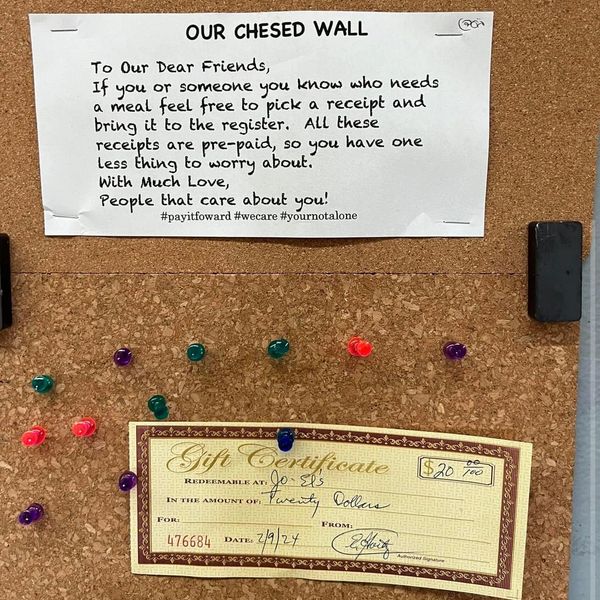 OUR CHESED WALL
To Our Dear Friends,
If you or someone you know who needs
a meal feel free to pick a receipt and
bring it to the register. All these
receipts are pre-paid, so you have one
less thing to worry about.
With Much Love,
People that care about you!
#payitfoward #wecare #yournotalone
Gift Certificate
$20 00/100
REDEEMABLE AT: Jo-Els
IN THE AMOUNT OF: Twenty Dollars
FOR: FROM:
476684 DATE: 2/9/24
Authorized Signature